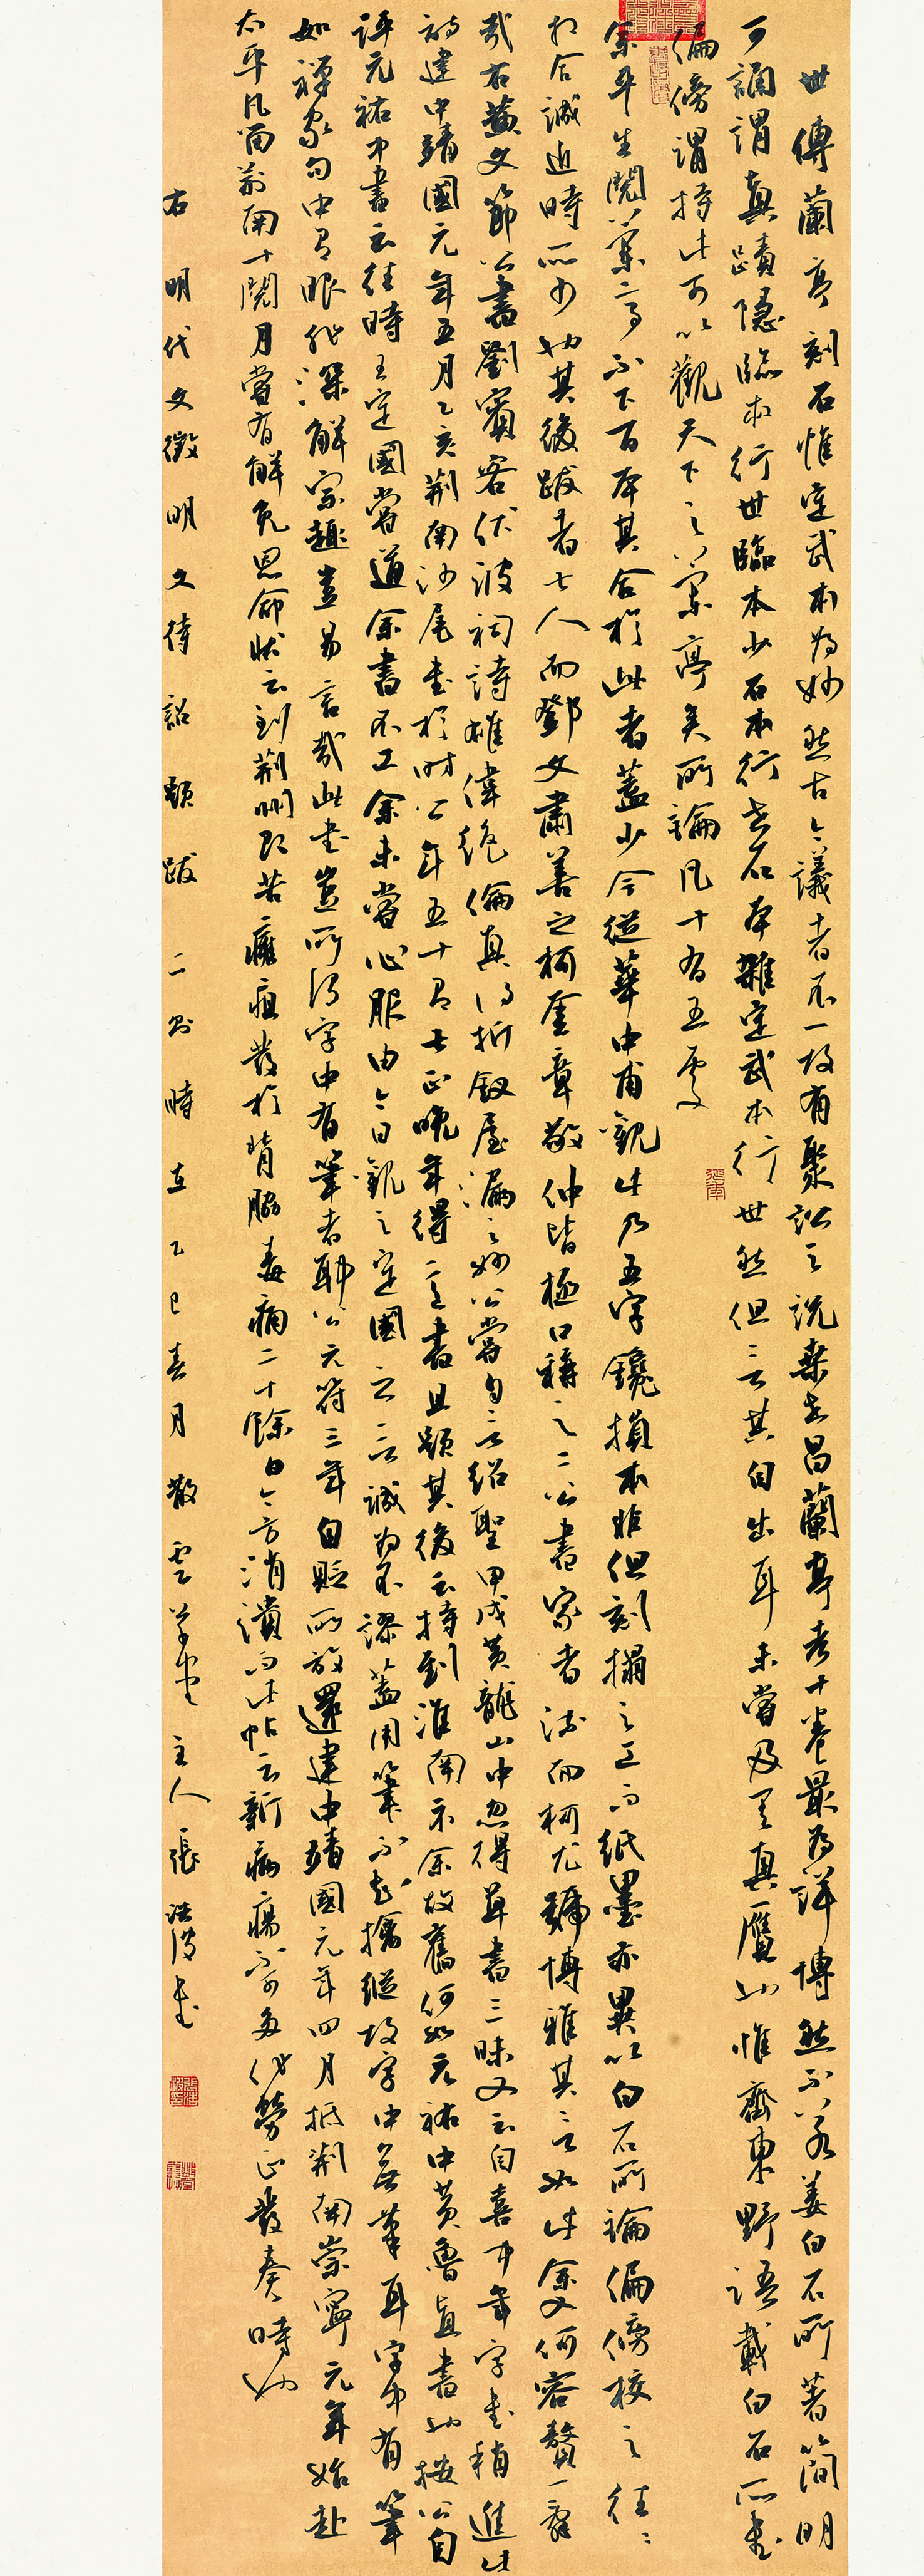 世傳蘭亭刻石惟定武本為妙然古今議者不一故有聚訟之說桑世昌蘭亭考十卷最為詳博然不若姜白石所著簡明
可誦謂真蹟隱臨本行世臨本少石本行世石本雜定武本行世然但言其自出耳未嘗及其真贗也惟齊東野語載白石所書
偏傍謂持此可以觀天下之蘭亭矣所論凡十有五處
余平生閱蘭亭不下百本其合於此者蓋少今從華中甫觀此乃五字鑱損本非但刻搨之工而紙墨亦異以白石所論偏傍校之往往
相合誠近時所少也其後跋者七人而鄧文肅善之柯奎章敬仲皆極口稱之二公書家者流而柯尤號博雅其言如此余又何容贅一辭
哉右黃文節公書劉賓客伏波祠詩雄偉絕倫真得折釵屋漏之妙公嘗自言紹聖甲戌黃龍山中忽得草書三昧又云自喜中年字書稍進此
詩建中靖國元年五月乙亥荊南沙尾書於時公年五十有七正晚年得意書且題其後云持到淮南示余故舊何如元祐中黃魯直書也按公自
評元祐中書云往時王定國嘗道余書不工余未嘗心服由今日觀之定國之言誠為不謬蓋用筆不知擒縱故字中無筆耳字中有筆
如禪家句中有眼非深解宗趣豈易言哉此書豈所謂字中有筆者耶公元符三年自貶所放還建中靖國元年四月抵荊南崇寧元年始赴
太平凡留荊南十閱月嘗有解免恩命狀云到荊州即苦癰疽發於背脅毒痛二十餘日今方消潰而此帖云新病瘍不可多作勞正發奏時也
右明代文徵明文待詔題跋二則時在乙巳春月散雲草堂主人張洪濤書